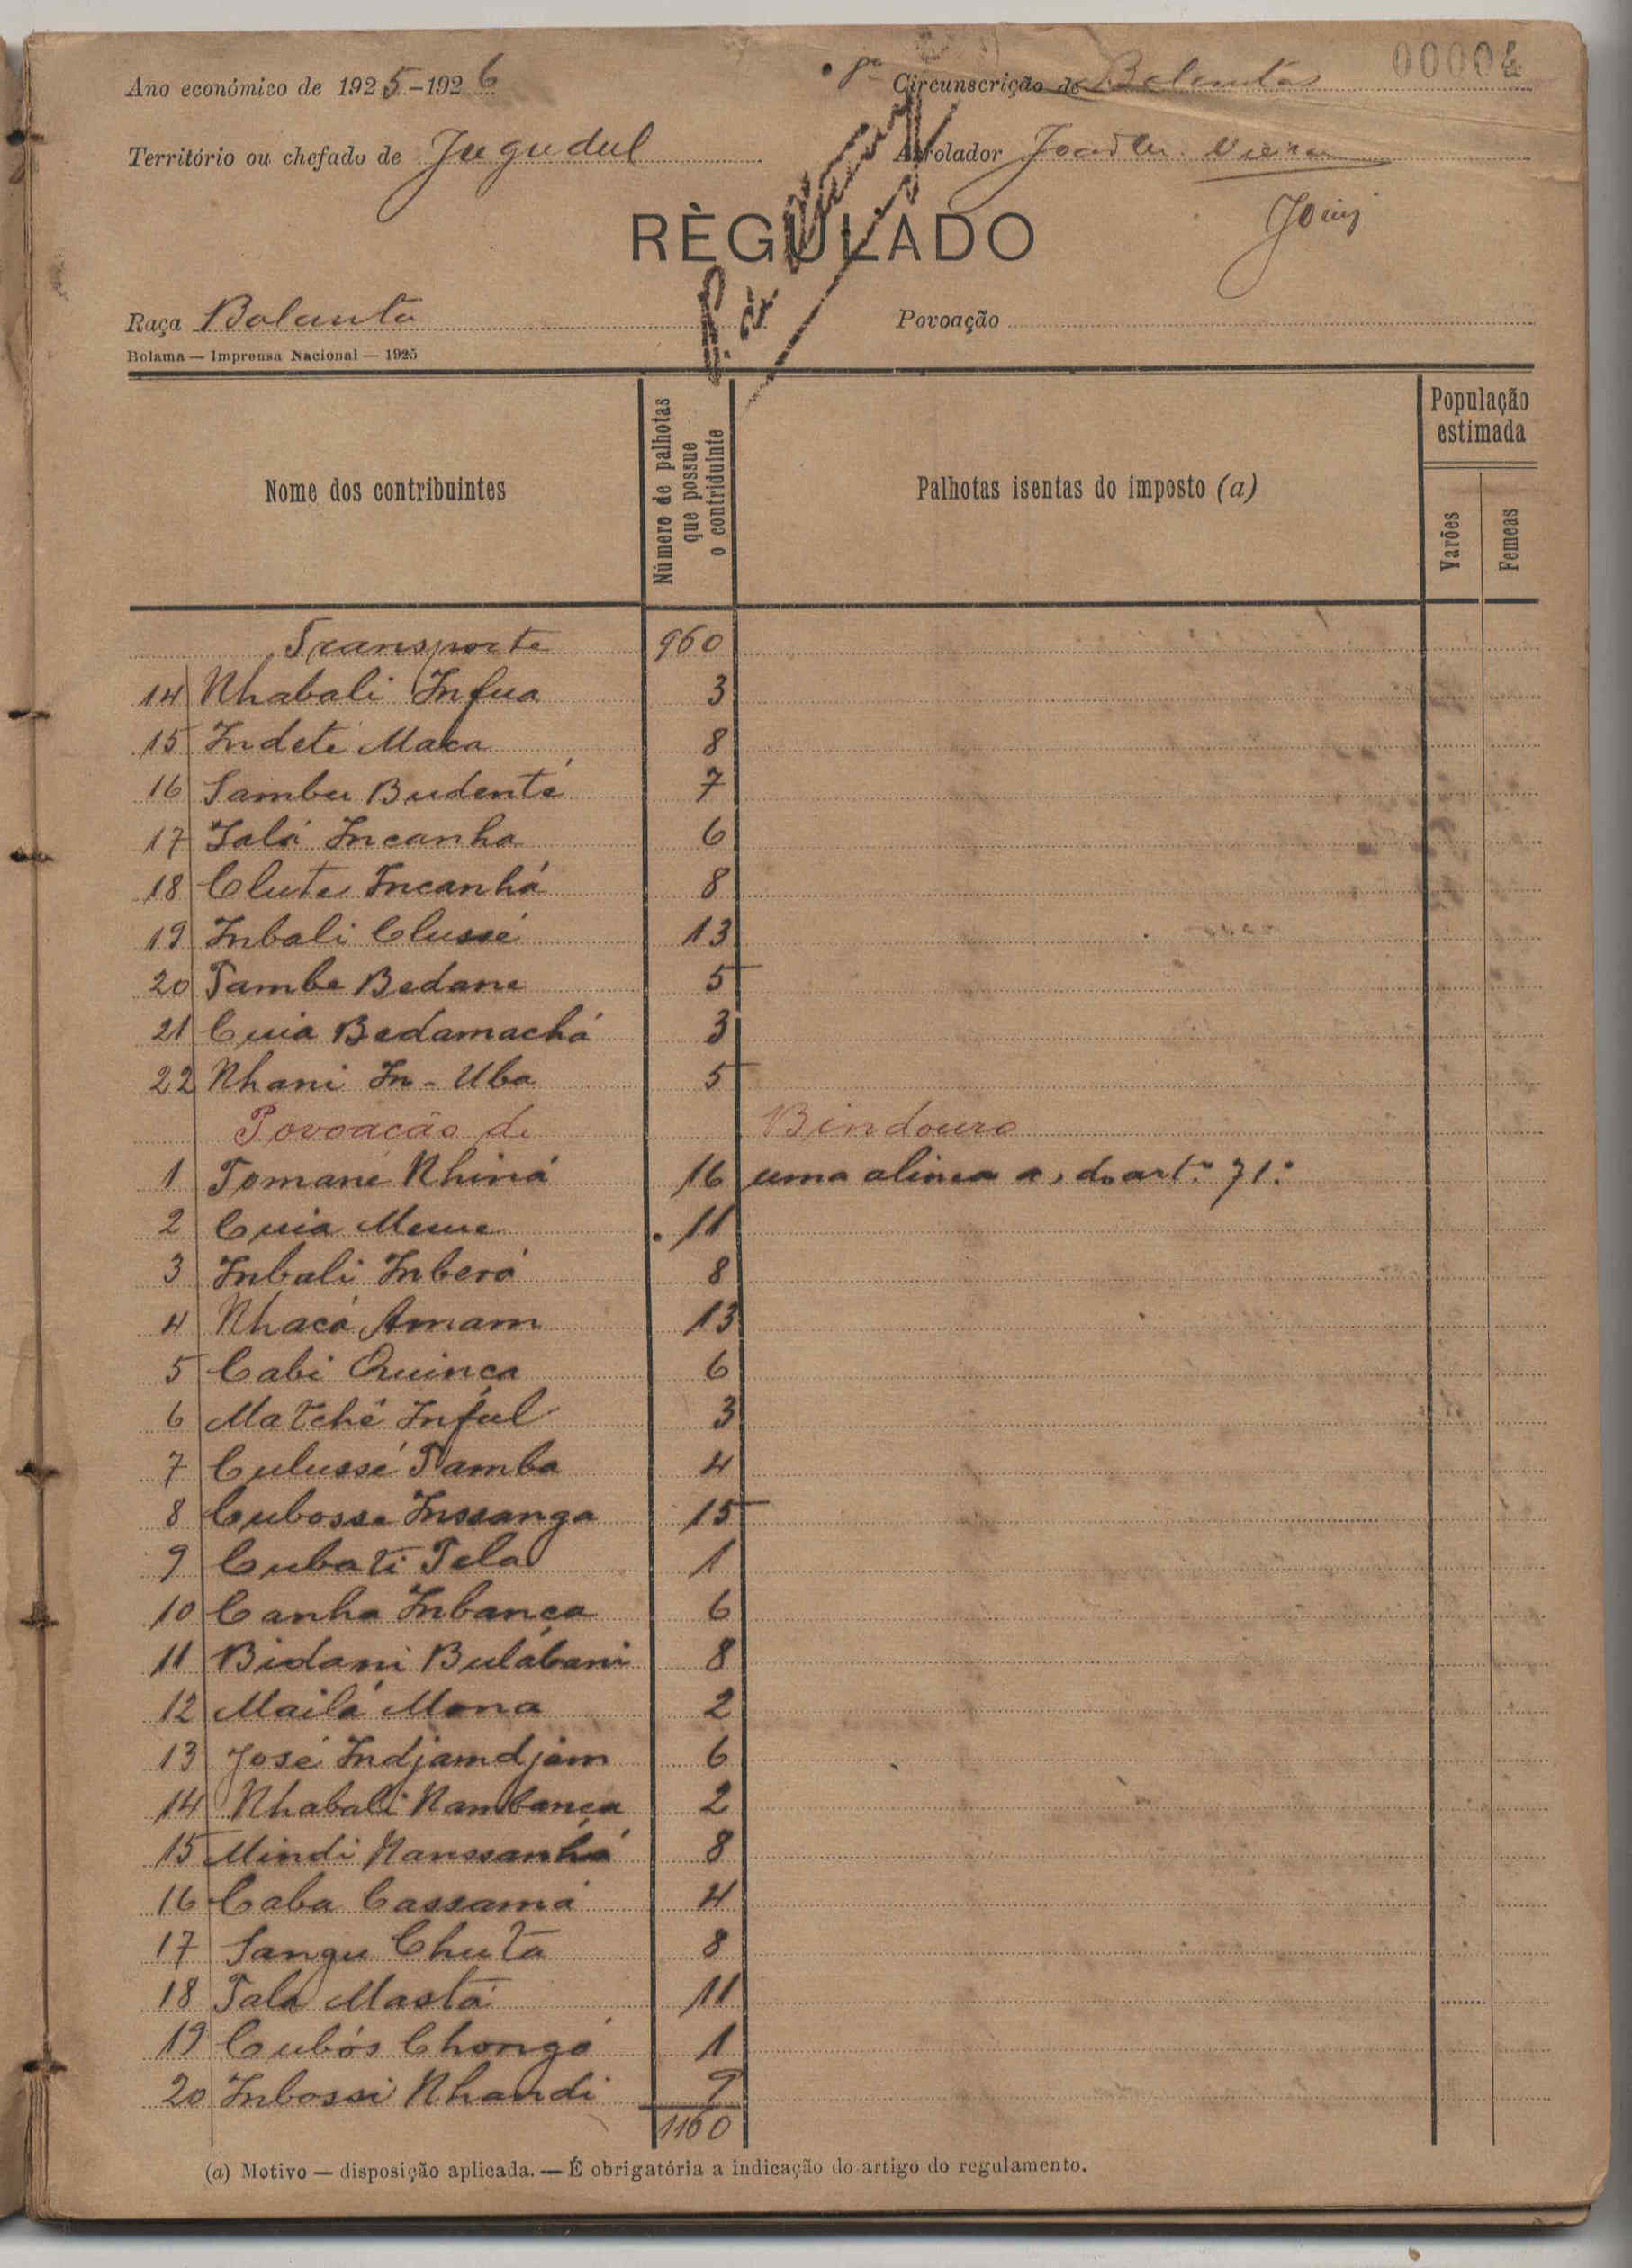 00004
Ano económico de 1925-1926 Circunscrição de Balantas
Território ou chefado de Jugudul Arrolador Vieira
RÈGULADO
Raça Balanta Povoação
Bolama — Imprensa Nacional — 1925
Nome dos contribuintes Número de palhotas que possue o contriduinte Palhotas isentas do imposto (a) População estimada
Varões Femeas
Transporte 960
14 Nhabali Infua 3
15 Indeté Maca 8
16 Sambu Budenté 7
17 Talá Incanha 6
18 Clute Incanhá 8
19 Inbali Clussé 13
20 Tambe Bedane 5
21 Cuia Bedamachá 3
22 Nhani In-Uba 5
Povoacão de Bindouro
1 Tomané Nhiná 16 uma alinea a, do artº 71º
2 Cuia Meme 11
3 Inbali Inberá 8
4 Nhacá Amam 13
5 Cabi Quinca 6
6 Matché Inful 3
7 Culussé Tamba 4
8 Cubosse Inssanga 15
9 Cubati Tela 1
10 Canha Inbança 6
11 Bidami Bulábani 8
12 Mailá Mona 2
13 José Indjamdjam 6
14 Nhabali Nambança 2
15 Mindi Nanssanhá 8
16 Caba Cassamá 4
17 Sangu Chuta 8
18 Tala Mastá 11
19 Cubós Chongó 1
20 Inbossi Nhandi 9
1160
(a) Motivo — disposição aplicada. — É obrigatória a indicação do artigo do regulamento.